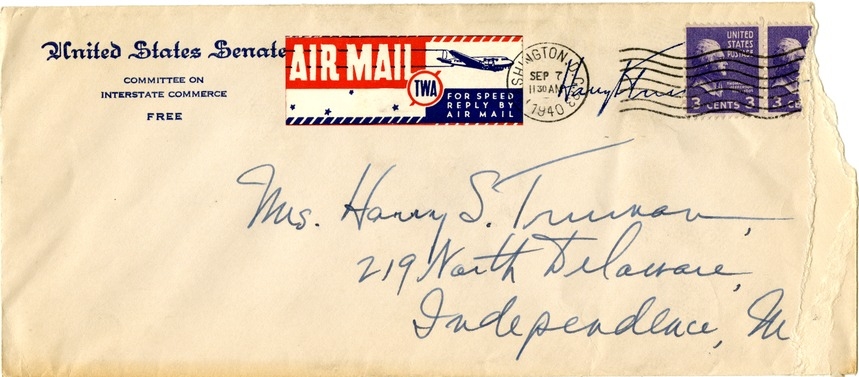 United States Senate
COMMITTEE ON
INTERSTATE COMMERCE
FREE
AIR MAIL
TWA
FOR SPEED
REPLY BY
AIR MAIL
SHINGTON,
SEP 7
11 30 AM
1940
Harry S. Trum
UNITED
STATES
POSTAGE
3 CENTS 3
3 CE
Mrs. Harry S. Truman,
219 North Delaware,
Independence, M